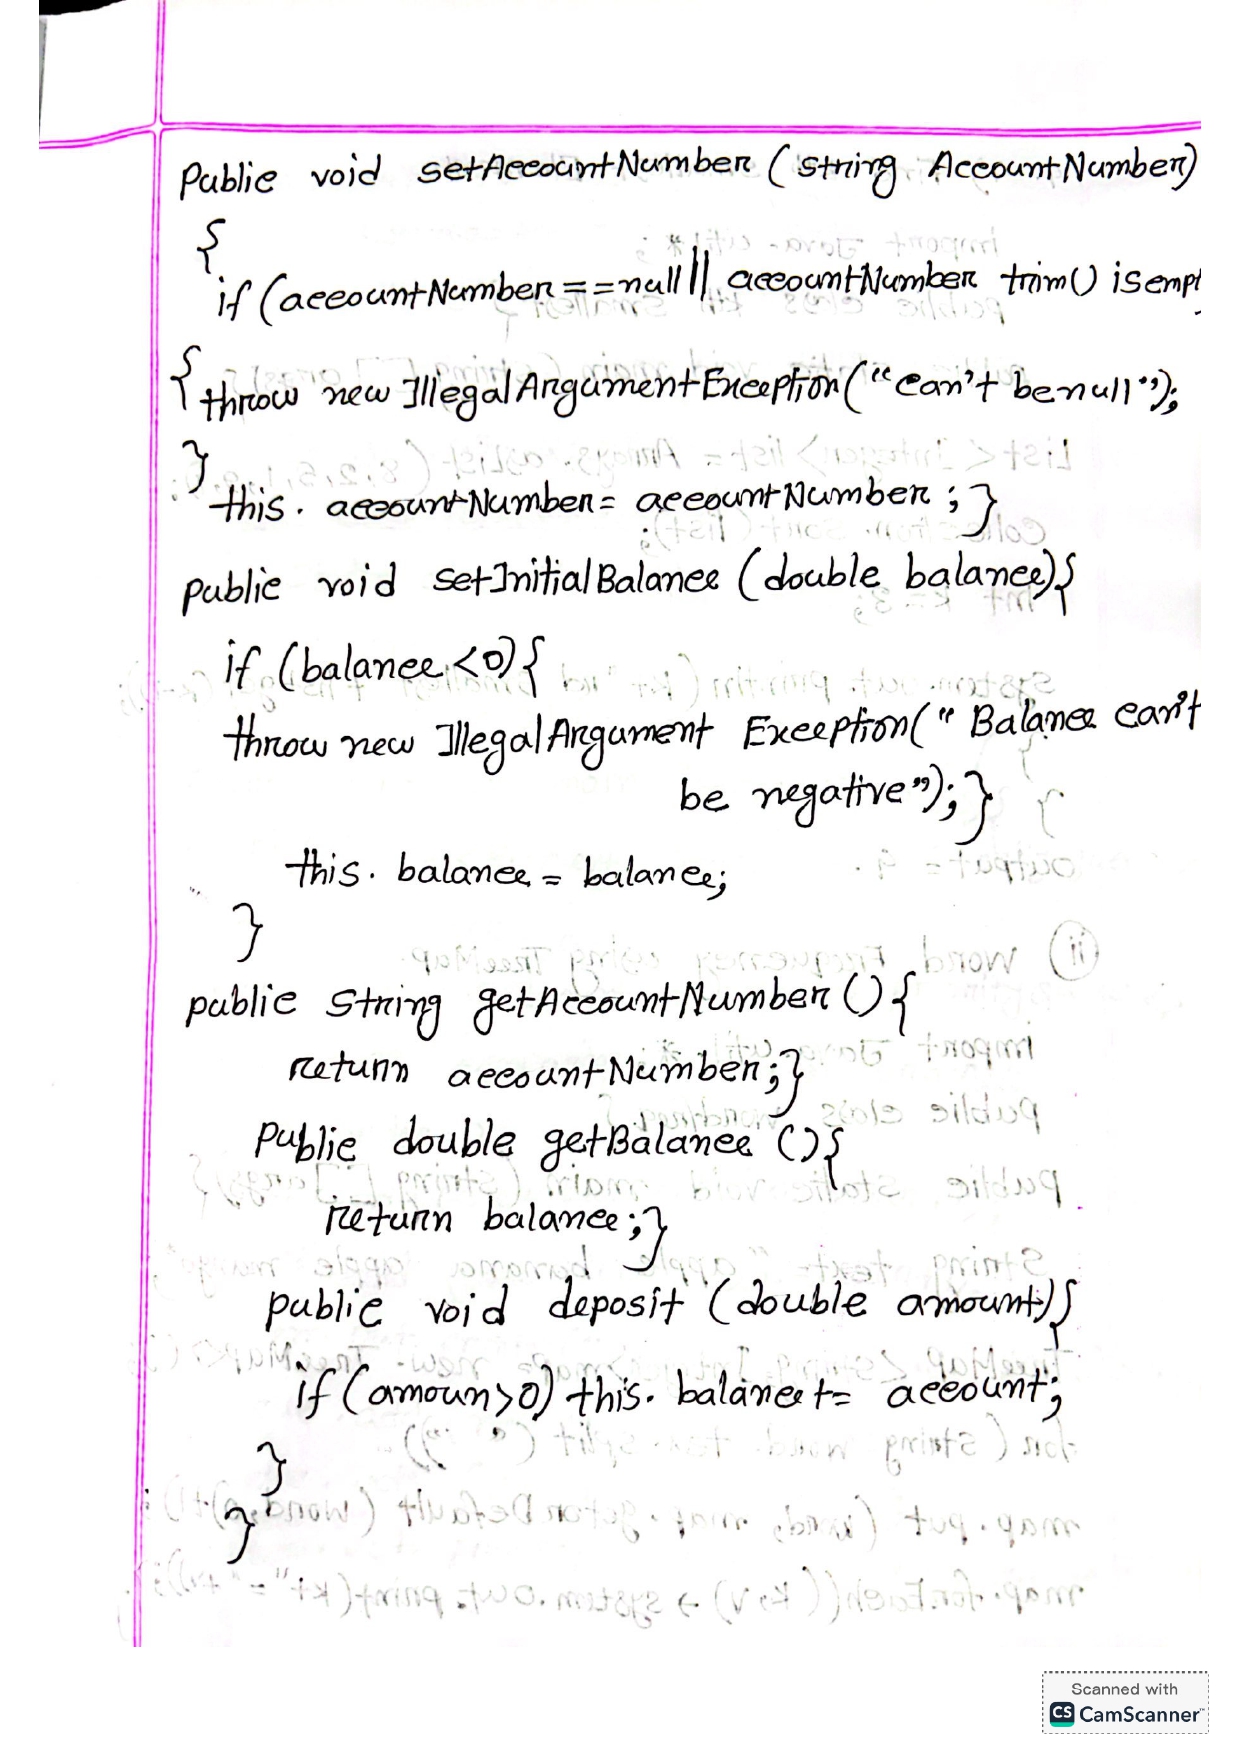 Public void setAccountNumber (string AccountNumber)
{
if (accountNumber==null || accountNumber trim() isempt
{ throw new IllegalArgumentException("can't be null");
}
this. accountNumber= accountNumber ; }
public void setInitialBalance (double balance){
if (balance <0){
throw new IllegalArgument Exception(" Balance can't
be negative"); }
this. balance = balance;
}
public String getAccountNumber () {
return accountNumber; }
Public double getBalance () {
return balance; }
public void deposit (double amount) {
if (amoun>0) this. balance += account;
}
}
Scanned with
CS CamScanner